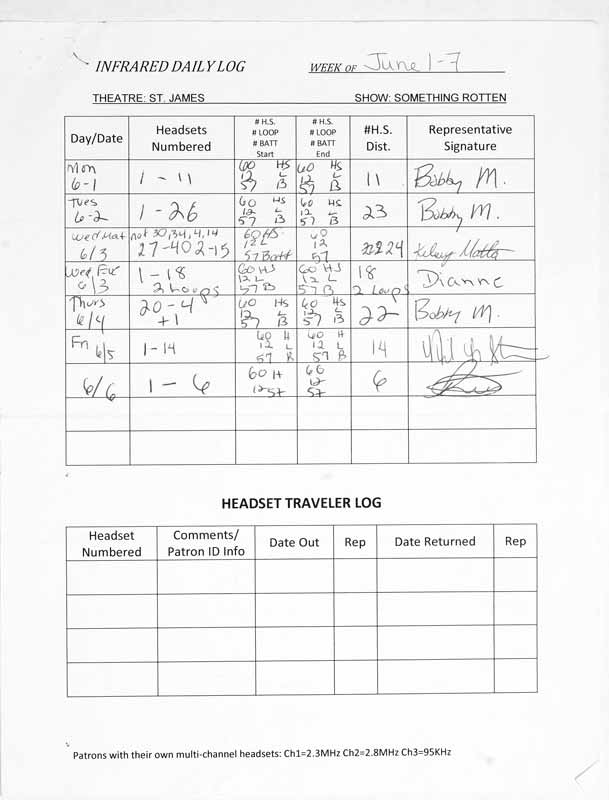 INFRARED DAILY LOG WEEK OF June 1-7
THEATRE: ST. JAMES SHOW: SOMETHING ROTTEN
Day/Date Headsets Numbered # H.S. # LOOP # BATT Start # H.S. # LOOP # BATT End #H.S. Dist. Representative Signature
Mon 6-1 1 - 11 60 HS 12 L 57 B 60 HS 12 L 57 B 11 Bobby M.
Tues 6-2 1 - 26 60 HS 12 L 57 B 60 HS 12 L 57 B 23 Bobby M.
Wed Mat 6/3 not 30, 34, 4, 14 27-40 2-15 60 HS 12 L 57 Batt 60 12 57 24
Wed Eve 6/3 1 - 18 2 Loops 60 HS 12 L 57 B 60 HS 12 L 57 B 18 2 Loops Dianne
Thurs 6/4 20 - 4 +1 60 HS 12 L 57 B 60 HS 12 L 57 B 22 Bobby M.
Fri 6/5 1-14 60 H 12 L 57 B 60 H 12 L 57 B 14
6/6 1 - 6 60 H 12 57 60 12 57 6
HEADSET TRAVELER LOG
Headset Numbered Comments/ Patron ID Info Date Out Rep Date Returned Rep
Patrons with their own multi-channel headsets: Ch1=2.3MHz Ch2=2.8MHz Ch3=95KHz